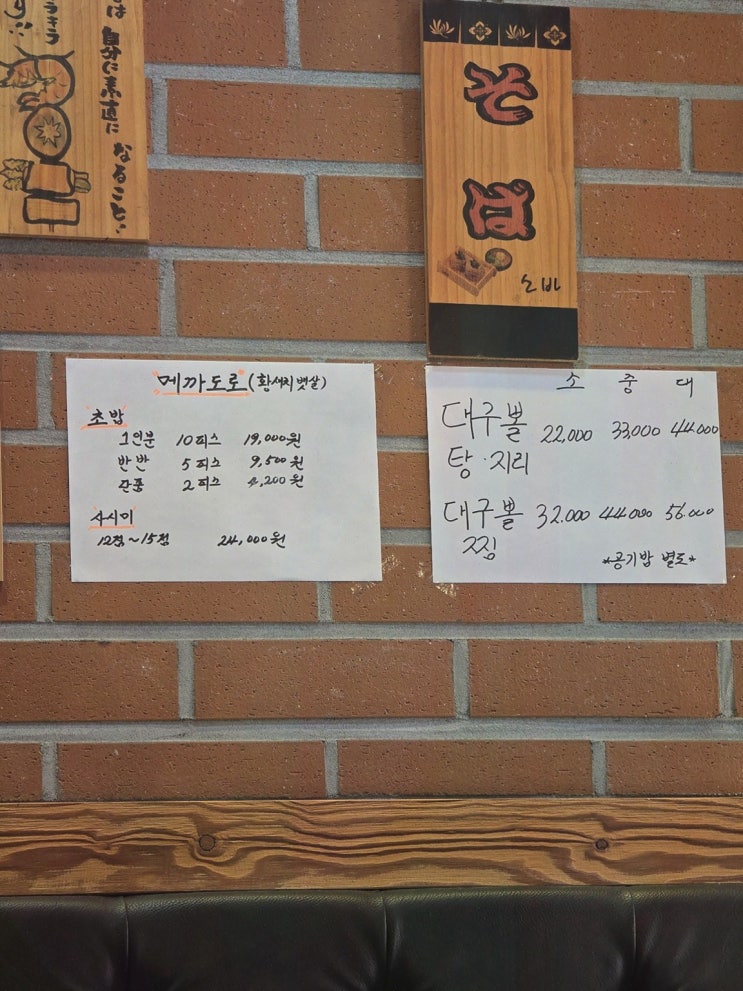 は 自分に素直に
なること‥
キラ
そば
소바
메까도로(황새치뱃살)
초밥
1인분 10피스 19,000원
반반 5피스 9,500원
단품 2피스 4,200원
사시미
12점~15점 24,000원
소 중 대
대구뽈 22,000 33,000 44,000
탕·지리
대구뽈 32.000 44.000 56.000
찜
*공기밥 별도*